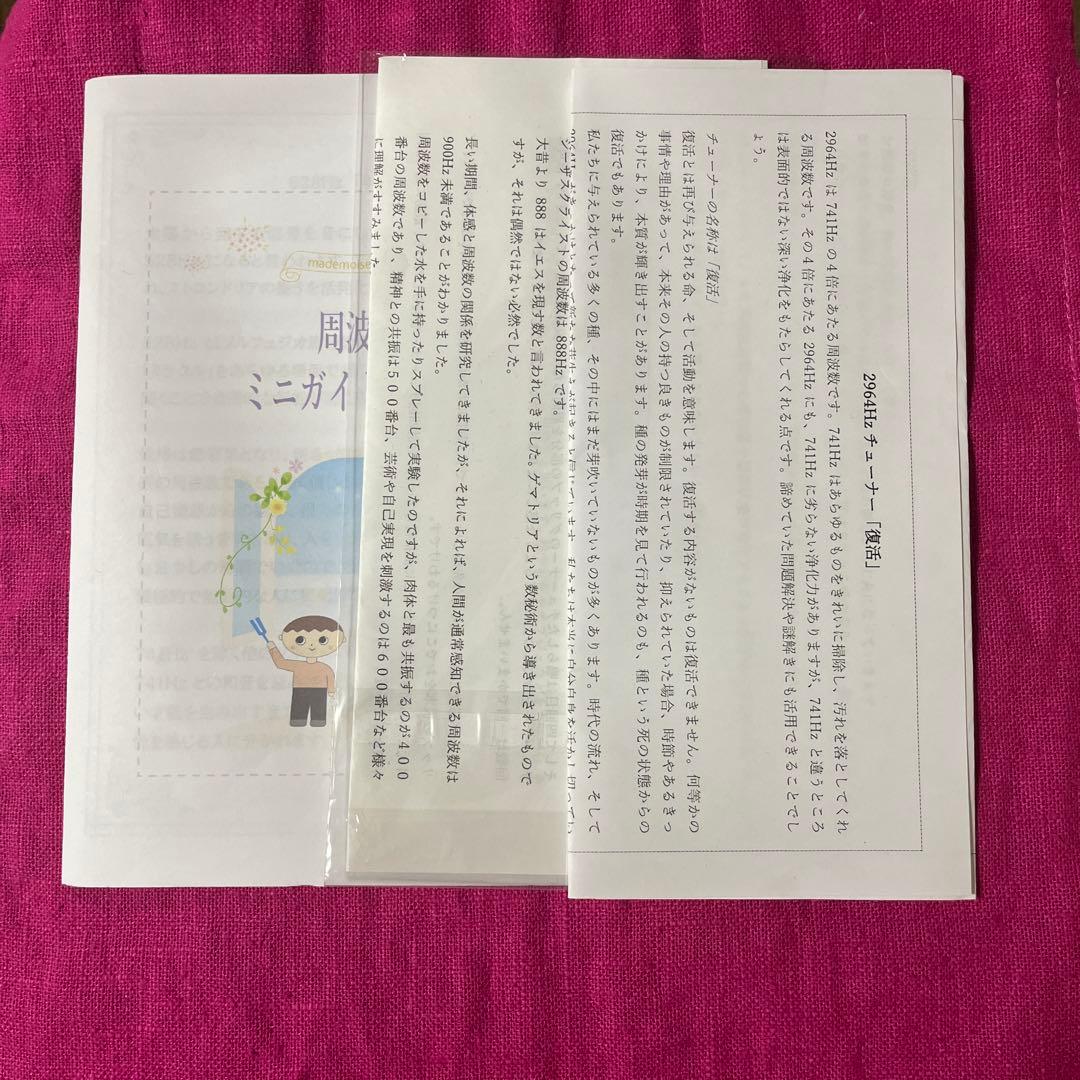 2964Hz チューナー「復活」
2964Hz は 741Hz の４倍にあたる周波数です。741Hz はあらゆるものをきれいに掃除し、汚れを落としてくれ
る周波数です。その４倍にあたる 2964Hz にも、741Hz に劣らない浄化力がありますが、741Hz と違うところ
は表面的ではない深い浄化をもたらしてくれる点です。諦めていた問題解決や謎解きにも活用できることでし
ょう。
チューナーの名称は「復活」
復活とは再び与えられる命、そして活動を意味します。復活する内容がないものは復活できません。何等かの
事情や理由があって、本来その人の持つ良きものが制限されていたり、抑えられていた場合、時節やあるきっ
かけにより、本質が輝き出すことがあります。種の発芽が時期を見て行われるのも、種という死の状態からの
復活でもあります。
私たちに与えられている多くの種、その中にはまだ芽吹いていないものが多くあります。時代の流れ、そして
ジーザスクライストの周波数は 888Hz です。
大昔より 888 はイエスを現す数と言われてきました。ゲマトリアという数秘術から導き出されたもので
すが、それは偶然ではない必然でした。
長い期間、体感と周波数の関係を研究してきましたが、それによれば、人間が通常感知できる周波数は
900Hz 未満であることがわかりました。
周波数をコピーした水を手に持ったりスプレーして実験したのですが、肉体と最も共振するのが４００
番台の周波数であり、精神との共振は５００番台、芸術や自己実現を刺激するのは６００番台など様々
に理解がすすみました
mademoise
周波
ミニガイ